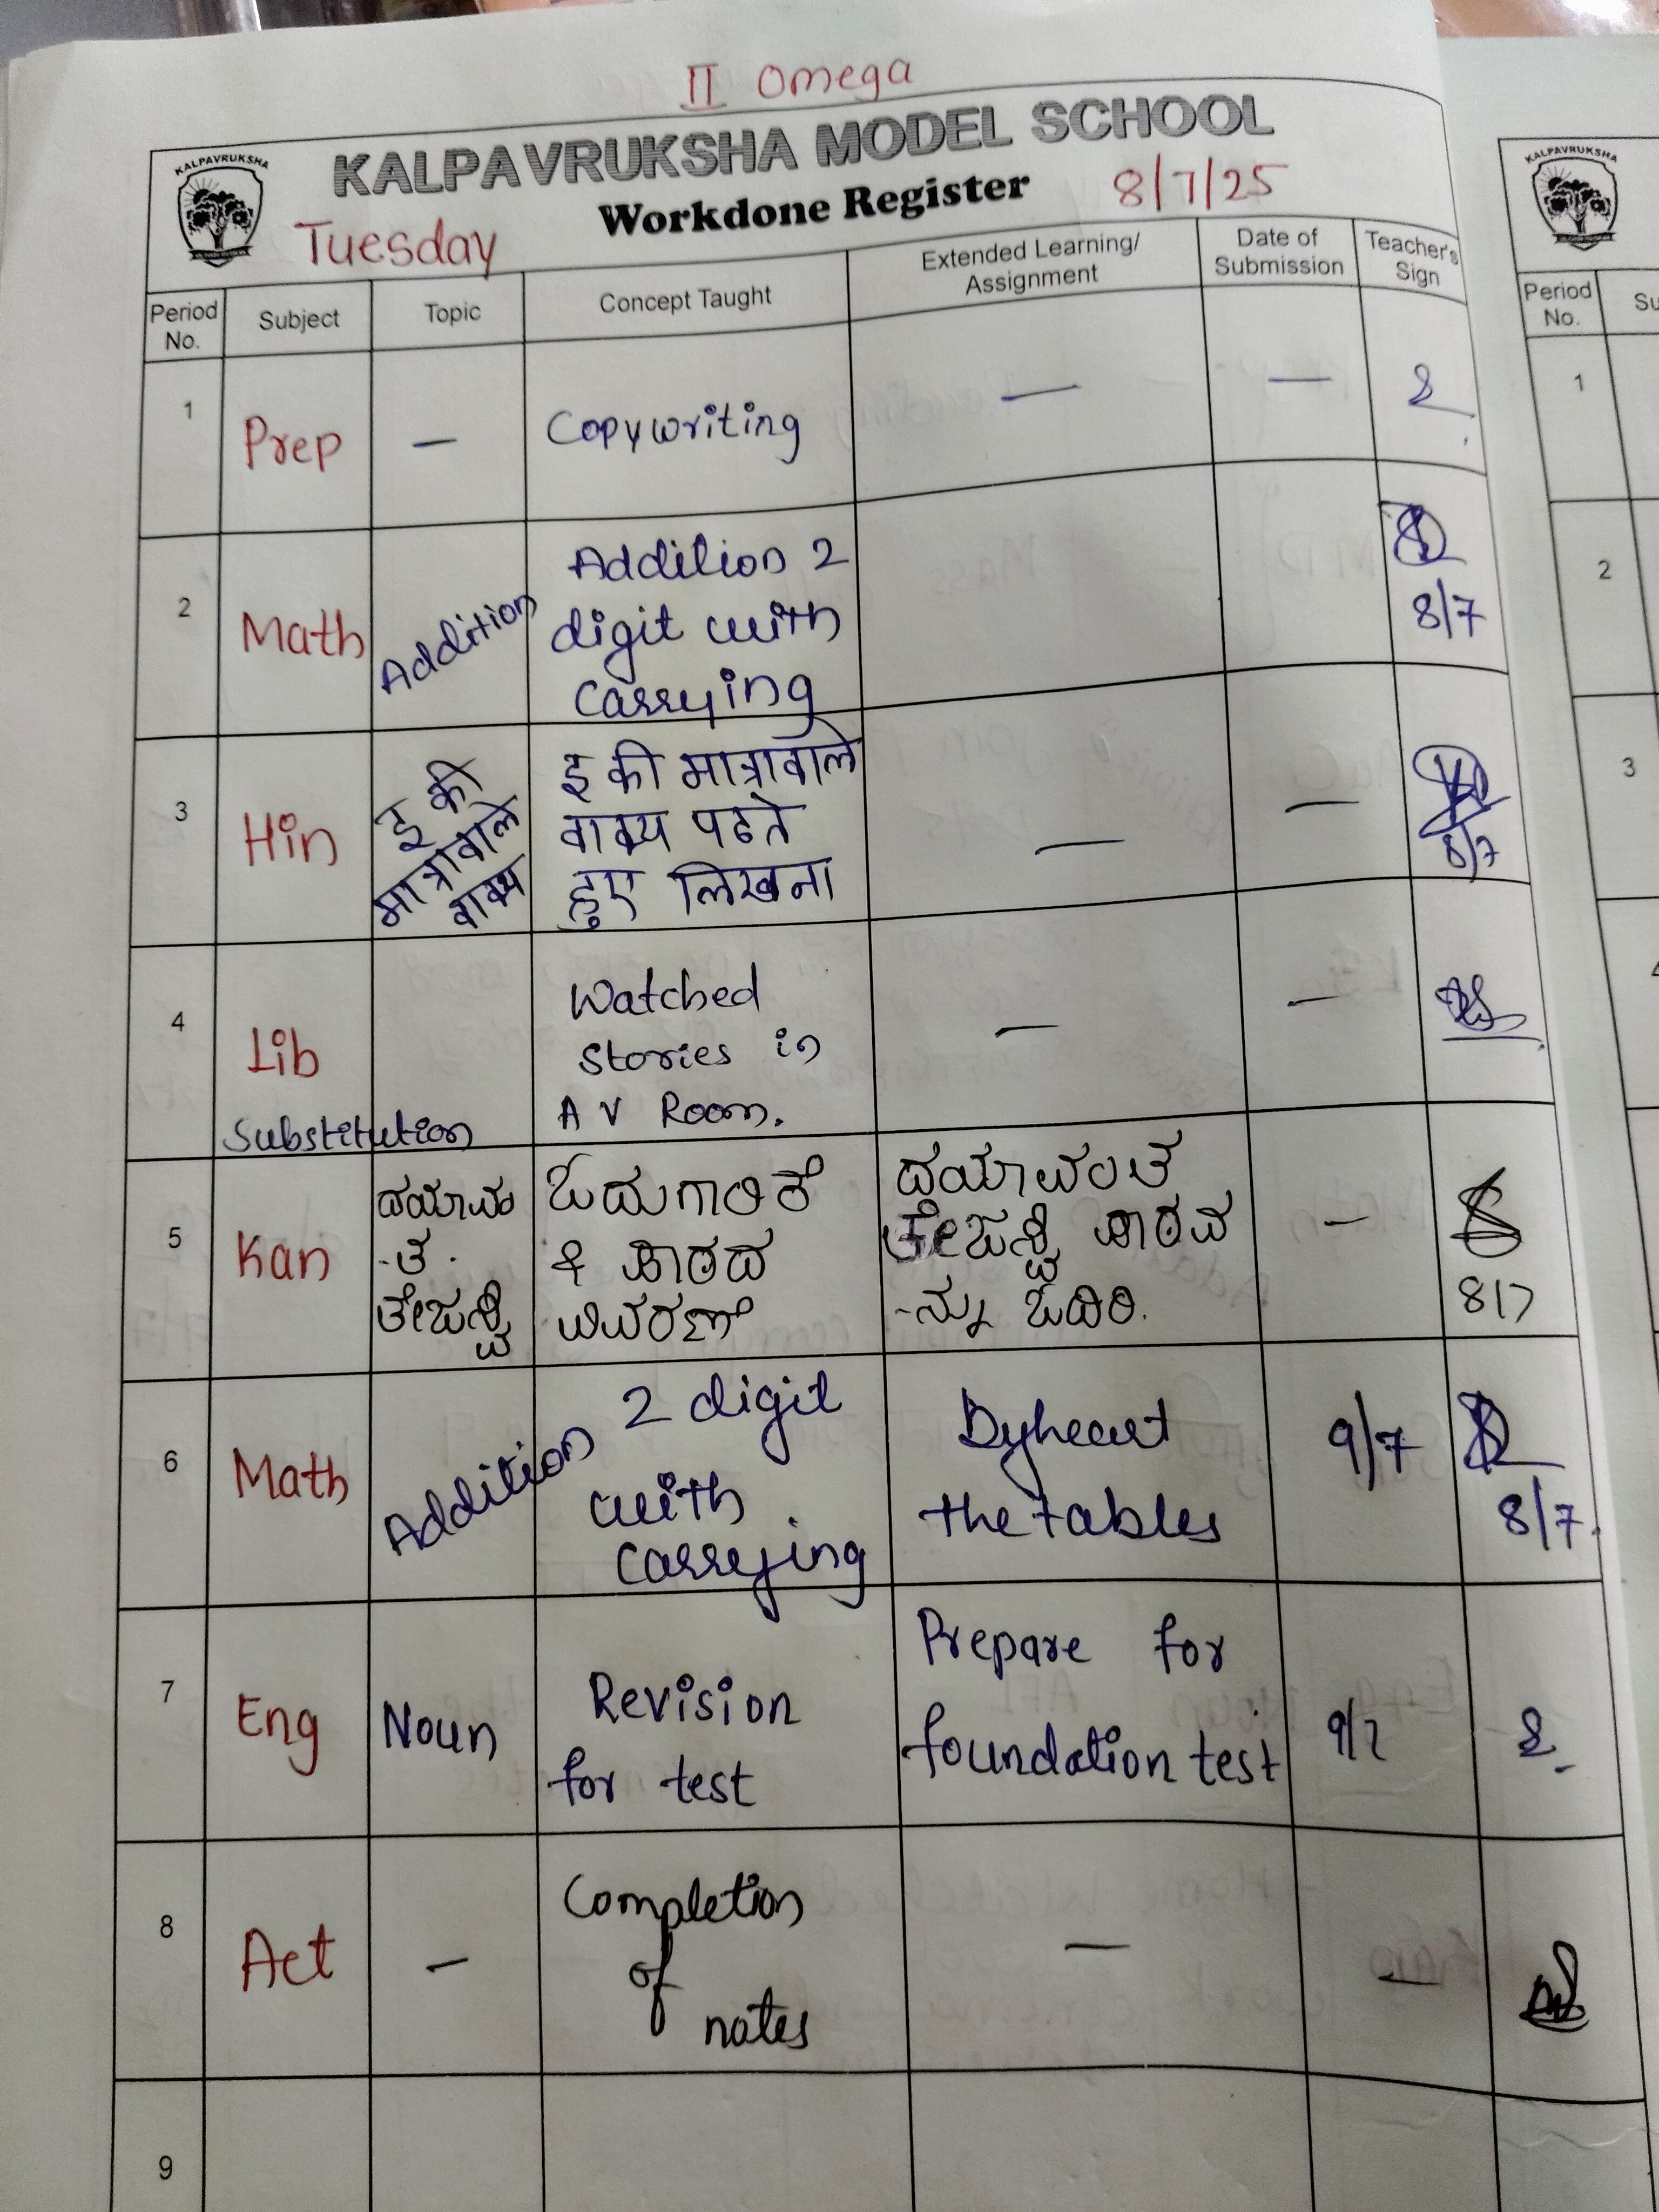 II Omega
KALPAVRUKSHA MODEL SCHOOL
KALPAVRUKSHA
Tuesday
Workdone Register
8/7/25
Period No.
Subject
Topic
Concept Taught
Extended Learning/
Assignment
Date of
Submission
Teacher's
Sign
1
Prep
—
Copywriting
—
—
2
Math
Addition
Addition 2
digit with
carrying
8/7
3
Hin
इ की
मात्रावाले
वाक्य
इ की मात्रावाले
वाक्य पढते
हुए लिखना
—
—
8/7
4
Lib
Substitution
Watched
Stories in
A V Room.
—
—
5
Kan
ದಯಾವಂ
-ತ.
ತೇಜಸ್ವಿ
ಓದುಗಾರಿಕೆ
& ಪಾಠದ
ವಿವರಣೆ
ದಯಾವಂತ
ತೇಜಸ್ವಿ ಪಾಠವ
-ನ್ನು ಓದಿರಿ.
—
8/7
6
Math
Addition
2 digit
with
carrying
Byheart
the tables
9/7
8/7
7
Eng
Noun
Revision
for test
Prepare for
foundation test
9/7
8
Act
—
Completion
of
notes
—
—
9
KALPAVRUKSHA
Period
No.
Su
1
2
3
4